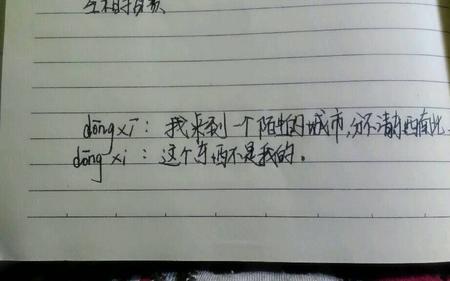 dōng xī：我来到一个陌生的城市，分不清东西南北
dōng xi：这个东西不是我的。